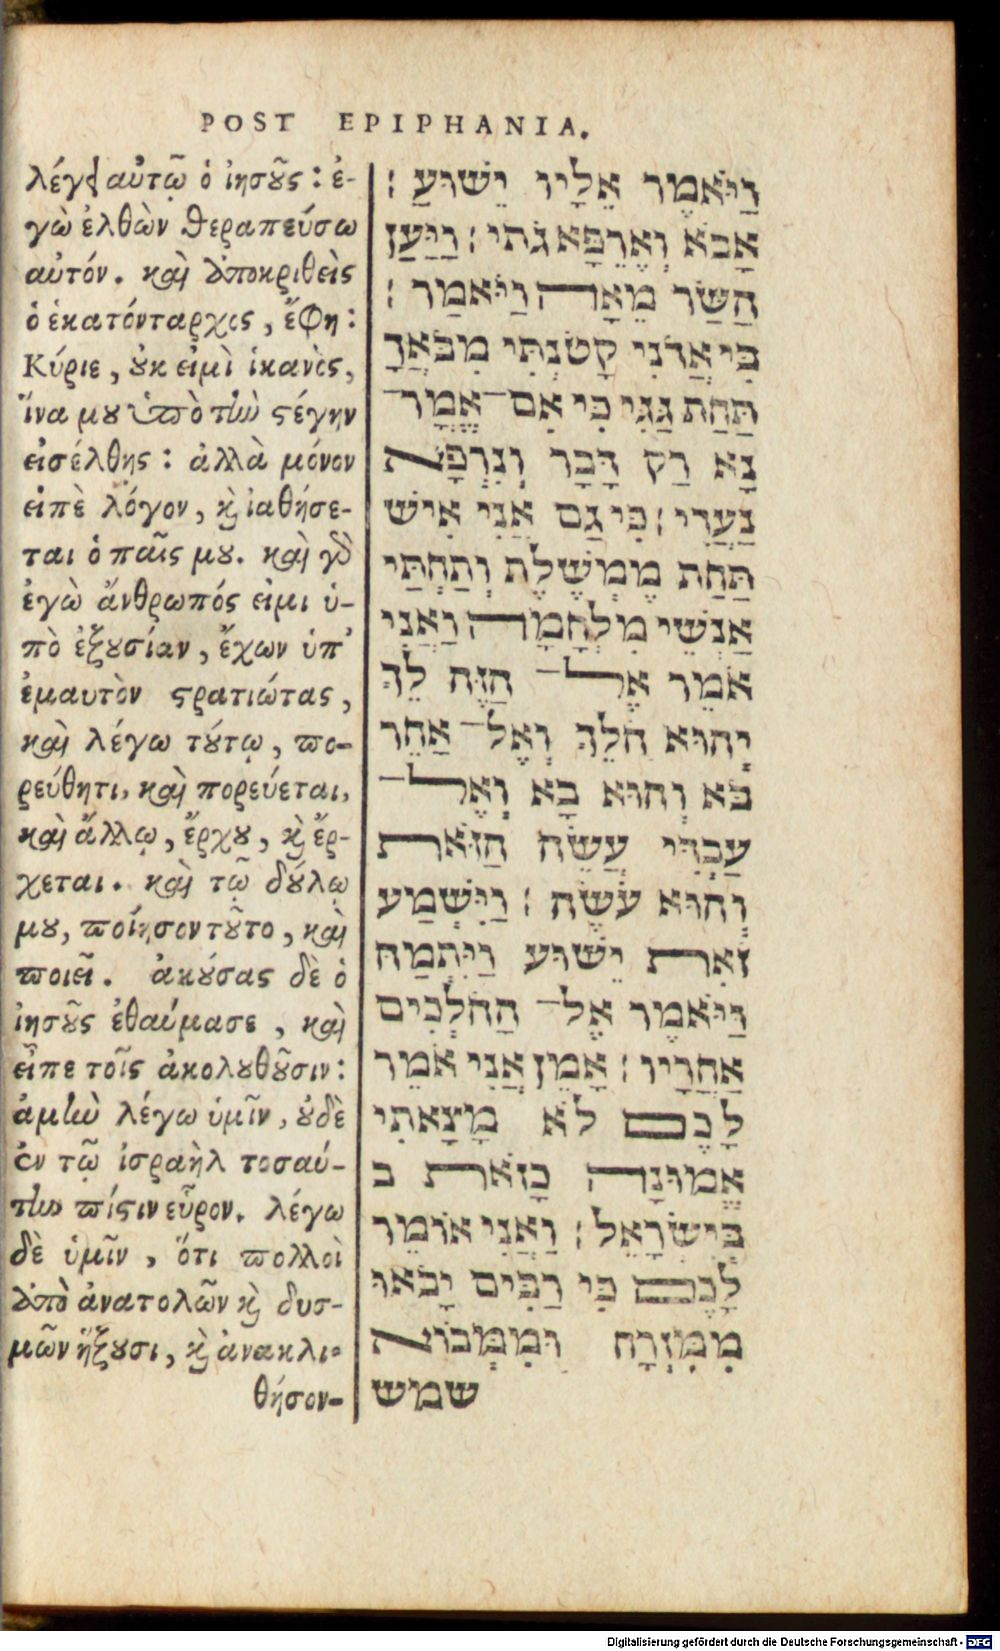 POST EPIPHANIA.
λέγει αὐτῷ ὁ ἰησοῦς : ἐ-
γὼ ἐλθὼν θεραπεύσω
αὐτόν. καὶ ἀποκριθεὶς
ὁ ἑκατόνταρχος, ἔφη :
Κύριε, οὐκ εἰμὶ ἱκανὸς,
ἵνα μου ὑπὸ τὴν στέγην
εἰσέλθῃς : ἀλλὰ μόνον
εἰπὲ λόγον, καὶ ἰαθήσε-
ται ὁ παῖς μου. καὶ γὰρ
ἐγὼ ἄνθρωπός εἰμι ὑ-
πὸ ἐξουσίαν, ἔχων ὑπ'
ἐμαυτὸν στρατιώτας,
καὶ λέγω τούτῳ, πο-
ρεύθητι, καὶ πορεύεται,
καὶ ἄλλῳ, ἔρχου, καὶ ἔρ-
χεται. καὶ τῷ δούλῳ
μου, ποίησον τοῦτο, καὶ
ποιεῖ. ἀκούσας δὲ ὁ
ἰησοῦς ἐθαύμασε, καὶ
εἶπε τοῖς ἀκολουθοῦσιν :
ἀμὴν λέγω ὑμῖν, οὐδὲ
ἐν τῷ ἰσραὴλ τοσαύ-
την πίστιν εὗρον. λέγω
δὲ ὑμῖν, ὅτι πολλοὶ
ἀπὸ ἀνατολῶν καὶ δυσ-
μῶν ἥξουσι, καὶ ἀνακλι-
θήσον-
וַיֹּאמֶר אֵלָיו יֵשׁוּעַ :
אָבֹא וְאֶרְפָּא אֹתוֹ : וַיַּעַן
הַשַּׂר מֵאָה וַיֹּאמַר :
כִּי אֲדֹנִי קָטֹנְתִּי מִבֹּאֲךָ
תַּחַת גַּגִּי כִּי אִם־אֱמָר־
נָא רַק דָּבָר וְנִרְפָּא
נַעֲרִי : כִּי גַם אֲנִי אִישׁ
תַּחַת מֶמְשֶׁלֶת וְתַחְתַּי
אַנְשֵׁי מִלְחָמָה וַאֲנִי
אֹמֵר אֶל־ הַזֶּה לֵךְ
וְהוּא הֹלֵךְ וְאֶל־ אַחֵר
בֹּא וְהוּא בָא וְאֶל־
עַבְדִּי עֲשֵׂה הַזֹּאת
וְהוּא עֹשֶׂה : וַיִּשְׁמַע
זֹאת יֵשׁוּעַ וַיִּתְמַהּ
וַיֹּאמֶר אֶל־ הַהֹלְכִים
אַחֲרָיו : אָמֵן אֲנִי אֹמֵר
לָכֶם לֹא מָצָאתִי
אֱמוּנָה כָּזֹאת ב
בְּיִשְׂרָאֵל : וַאֲנִי אוֹמֵר
לָכֶם כִּי רַבִּים יָבֹאוּ
מִמִּזְרָח וּמִמְּבוֹא
שמש
Digitalisierung gefördert durch die Deutsche Forschungsgemeinschaft - DFG